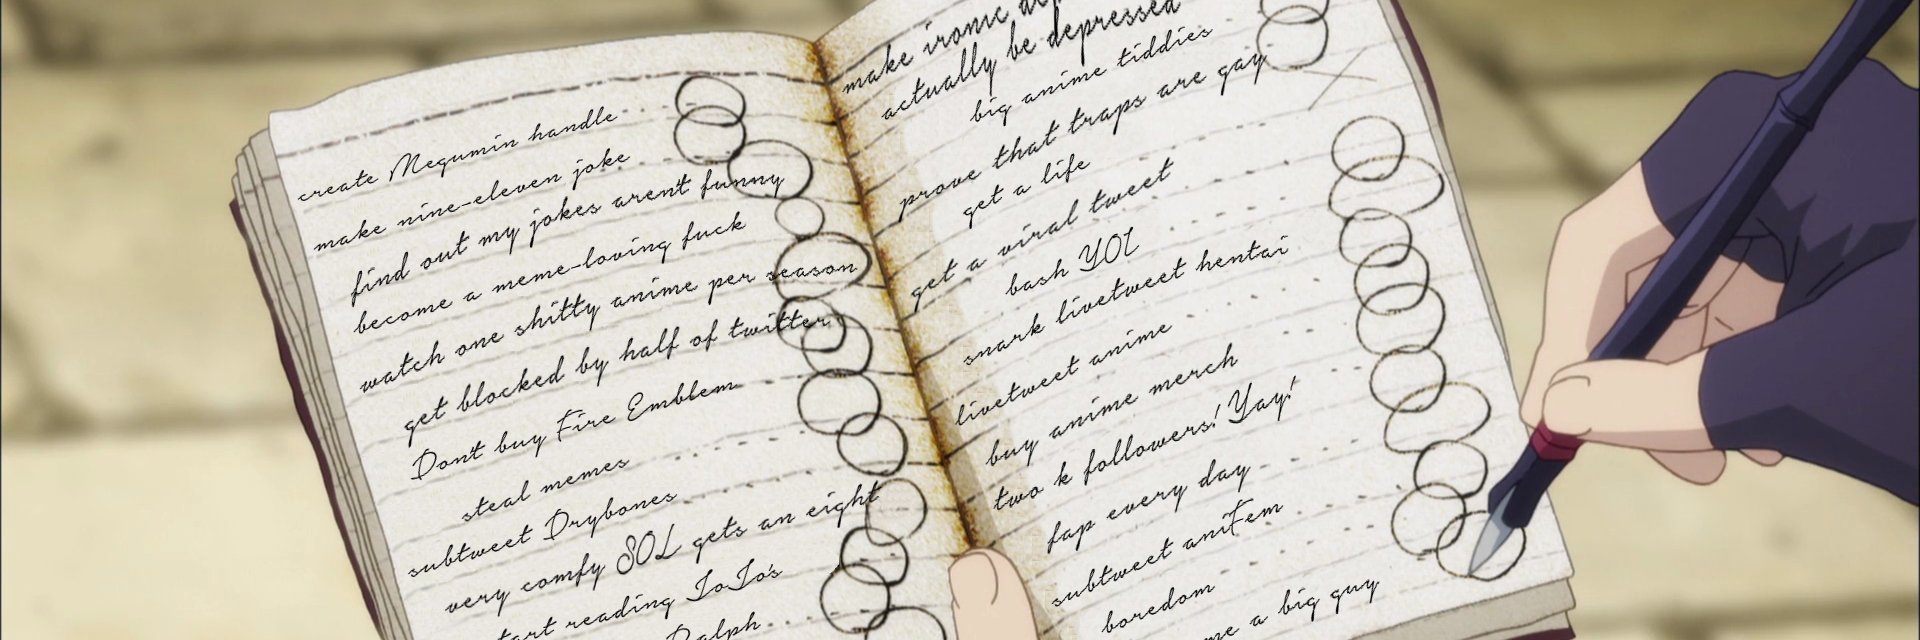 create Megumin handle
make nine-eleven joke
find out my jokes arent funny
become a meme-loving fuck
watch one shitty anime per season
get blocked by half of twitter
Don't buy Fire Emblem
steal memes
subtweet Drybones
very comfy SOL gets an eight
tart reading JoJo's
Ralph
make ironic
actually be depressed
big anime tiddies
prove that traps are gay
get a life
get a viral tweet
bash YOI
snark livetweet hentai
livetweet anime
buy anime merch
two k followers! Yay!
fap every day
subtweet aniFem
boredom
me a big guy